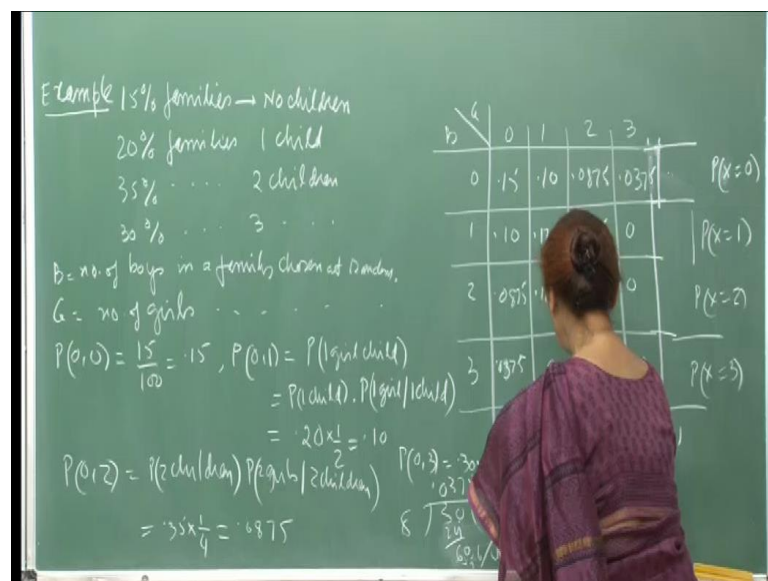 Example 15% families → No children
20% families 1 child
35% .... 2 children
30% ... 3 ....
B = no. of boys in a family chosen at random.
G = no. of girls .. .. . .
P(0,0) = 15/100 = .15, P(0,1) = P(1 girl child)
= P(1 child). P(1 girl/1 child)
= .20 x 1/2 = .10
P(0,2) = P(2 children) P(2 girls/2 children)
= .35 x 1/4 = .0875
P(0,3) = .30
.037
8
24
G
B 0 1 2 3
0 .15 .10 .0875 .0375 P(x=0)
1 .10 0 P(x=1)
2 .0875 0 P(x=2)
3 .0375 P(x=3)